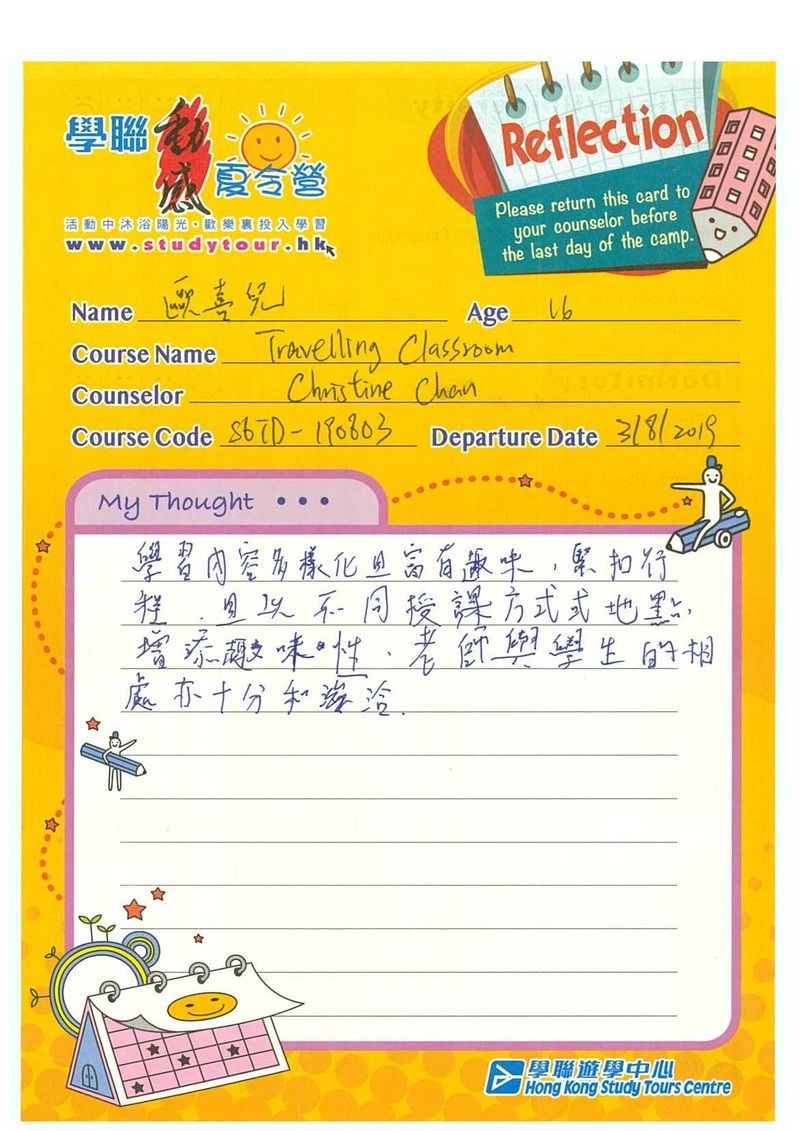 學聯 動感 夏令營
活動中沐浴陽光・歡樂裏投入學習
www.studytour.hk
Reflection
Please return this card to
your counselor before
the last day of the camp.
Name 歐喜兒 Age 16
Course Name Travelling Classroom
Counselor Christine Chan
Course Code SBTD-190803 Departure Date 3/8/2019
My Thought • • •
學習內容多樣化且富有趣味，緊扣行
程，且以不同授課方式或地點，
增添趣味性，老師與學生的相
處亦十分和諧融洽.
學聯遊學中心
Hong Kong Study Tours Centre